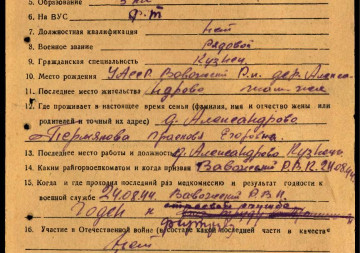 5. Образование 5 кл
6. На ВУС
7. Должностная квалификация Нет
8. Военное звание Рядовой
9. Гражданская специальность Кузнец
10. Место рождения УАССР. Вавожский Р.н. дер. Алекса-
11. Последнее место жительства ндрово
12. Где проживает в настоящее время семья (фамилия, имя и отчество жены или
родителей и точный их адрес) д. Александрово
Пермякова Прасковья Егоровна.
13. Последнее место работы и должность д. Александрово Кузнец
14. Каким райгорвоенкоматом и когда призван Вавожский Р.В.К. 24.08.44
15. Когда и где проходил последний раз медкомиссию и результат годности к
военной службе 24.08.44 Вавожский Р.В.К.
Годен к
16. Участие в Отечественной войне (в составе какой последней части и в качестве
Нет